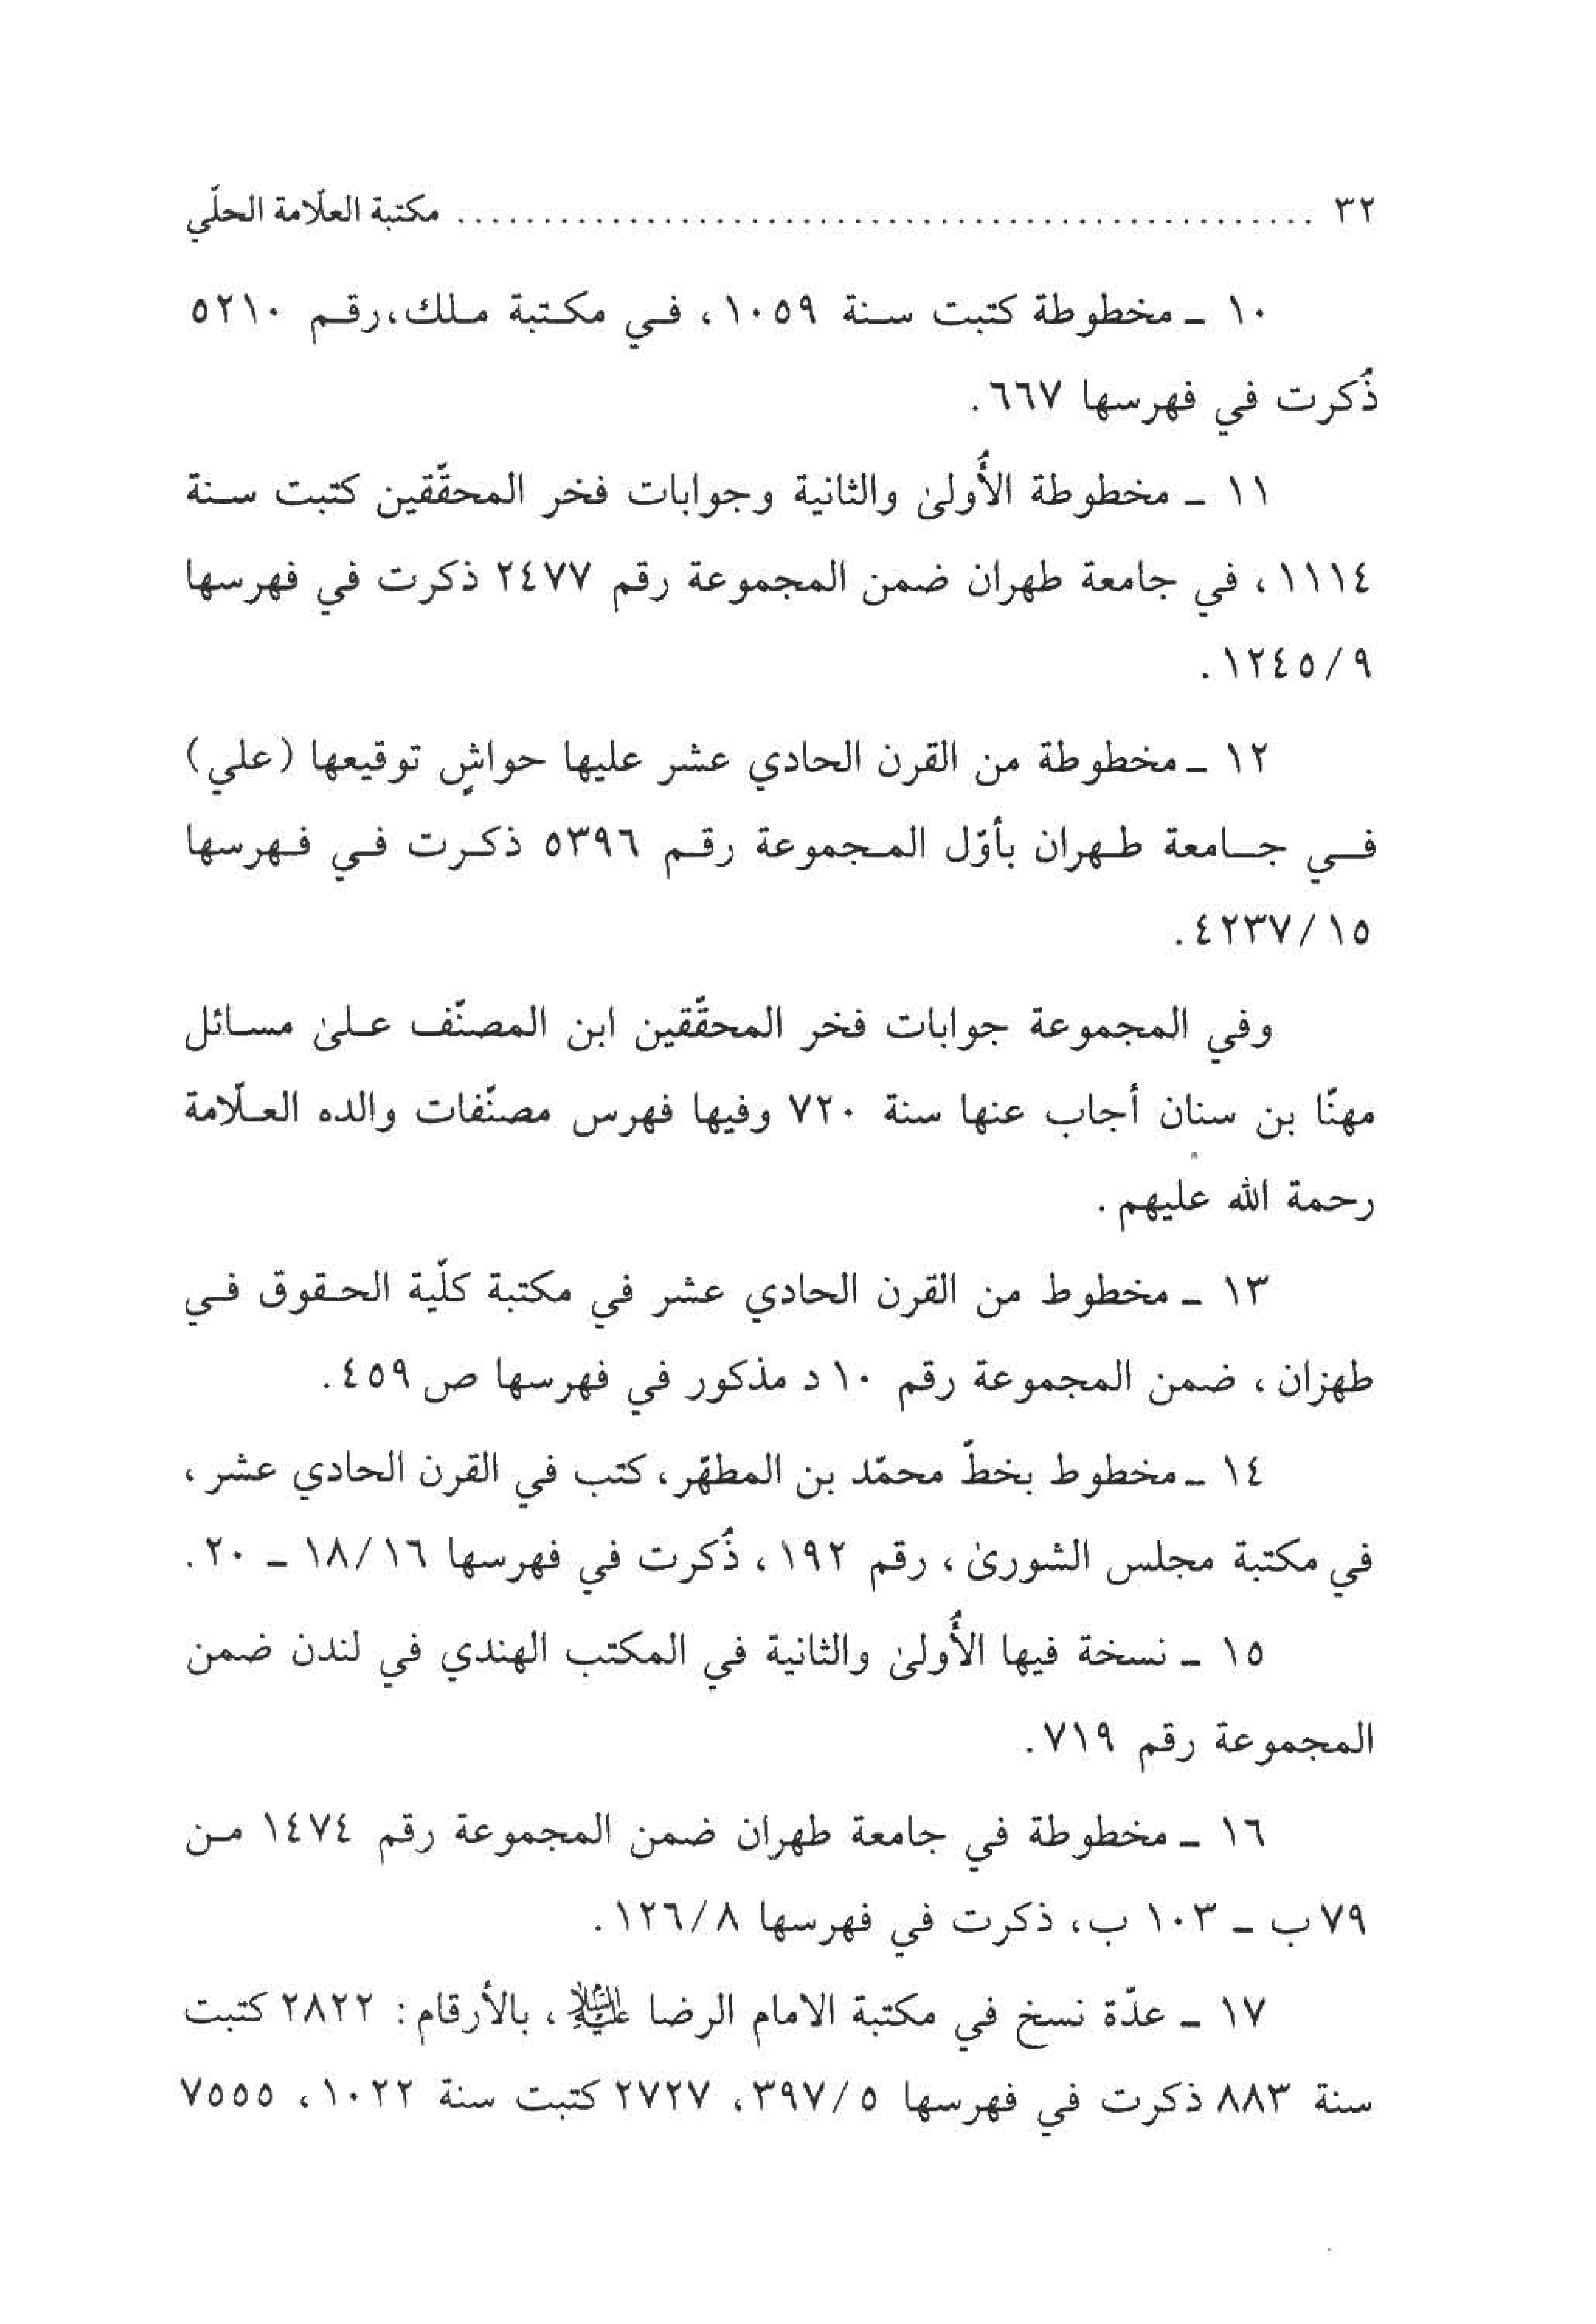 ٣٢ .................................................. مكتبة العلّامة الحلّي
١٠ ـ مخطوطة كتبت سنة ١٠٥٩، في مكتبة ملك،رقم ٥٢١٠
ذُكرت في فهرسها ٦٦٧.
١١ ـ مخطوطة الأُولىٰ والثانية وجوابات فخر المحقّقين كتبت سنة
١١١٤، في جامعة طهران ضمن المجموعة رقم ٢٤٧٧ ذكرت في فهرسها
١٢٤٥/٩.
١٢ ـ مخطوطة من القرن الحادي عشر عليها حواشٍ توقيعها (علي)
في جامعة طهران بأوّل المجموعة رقم ٥٣٩٦ ذكرت في فهرسها
٤٢٣٧/١٥.
وفي المجموعة جوابات فخر المحقّقين ابن المصنّف علىٰ مسائل
مهنّا بن سنان أجاب عنها سنة ٧٢٠ وفيها فهرس مصنّفات والده العلّامة
رحمة الله عليهم.
١٣ ـ مخطوط من القرن الحادي عشر في مكتبة كلّية الحقوق في
طهزان، ضمن المجموعة رقم ١٠ د مذكور في فهرسها ص ٤٥٩.
١٤ ـ مخطوط بخطّ محمّد بن المطهّر، كتب في القرن الحادي عشر،
في مكتبة مجلس الشورىٰ، رقم ١٩٢، ذُكرت في فهرسها ١٨/١٦ ـ ٢٠.
١٥ ـ نسخة فيها الأُولىٰ والثانية في المكتب الهندي في لندن ضمن
المجموعة رقم ٧١٩.
١٦ ـ مخطوطة في جامعة طهران ضمن المجموعة رقم ١٤٧٤ من
٧٩ ب ـ ١٠٣ ب، ذكرت في فهرسها ١٢٦/٨.
١٧ ـ عدّة نسخ في مكتبة الامام الرضا عليه السلام، بالأرقام: ٢٨٢٢ كتبت
سنة ٨٨٣ ذكرت في فهرسها ٣٩٧/٥، ٢٧٢٧ كتبت سنة ١٠٢٢، ٧٥٥٥